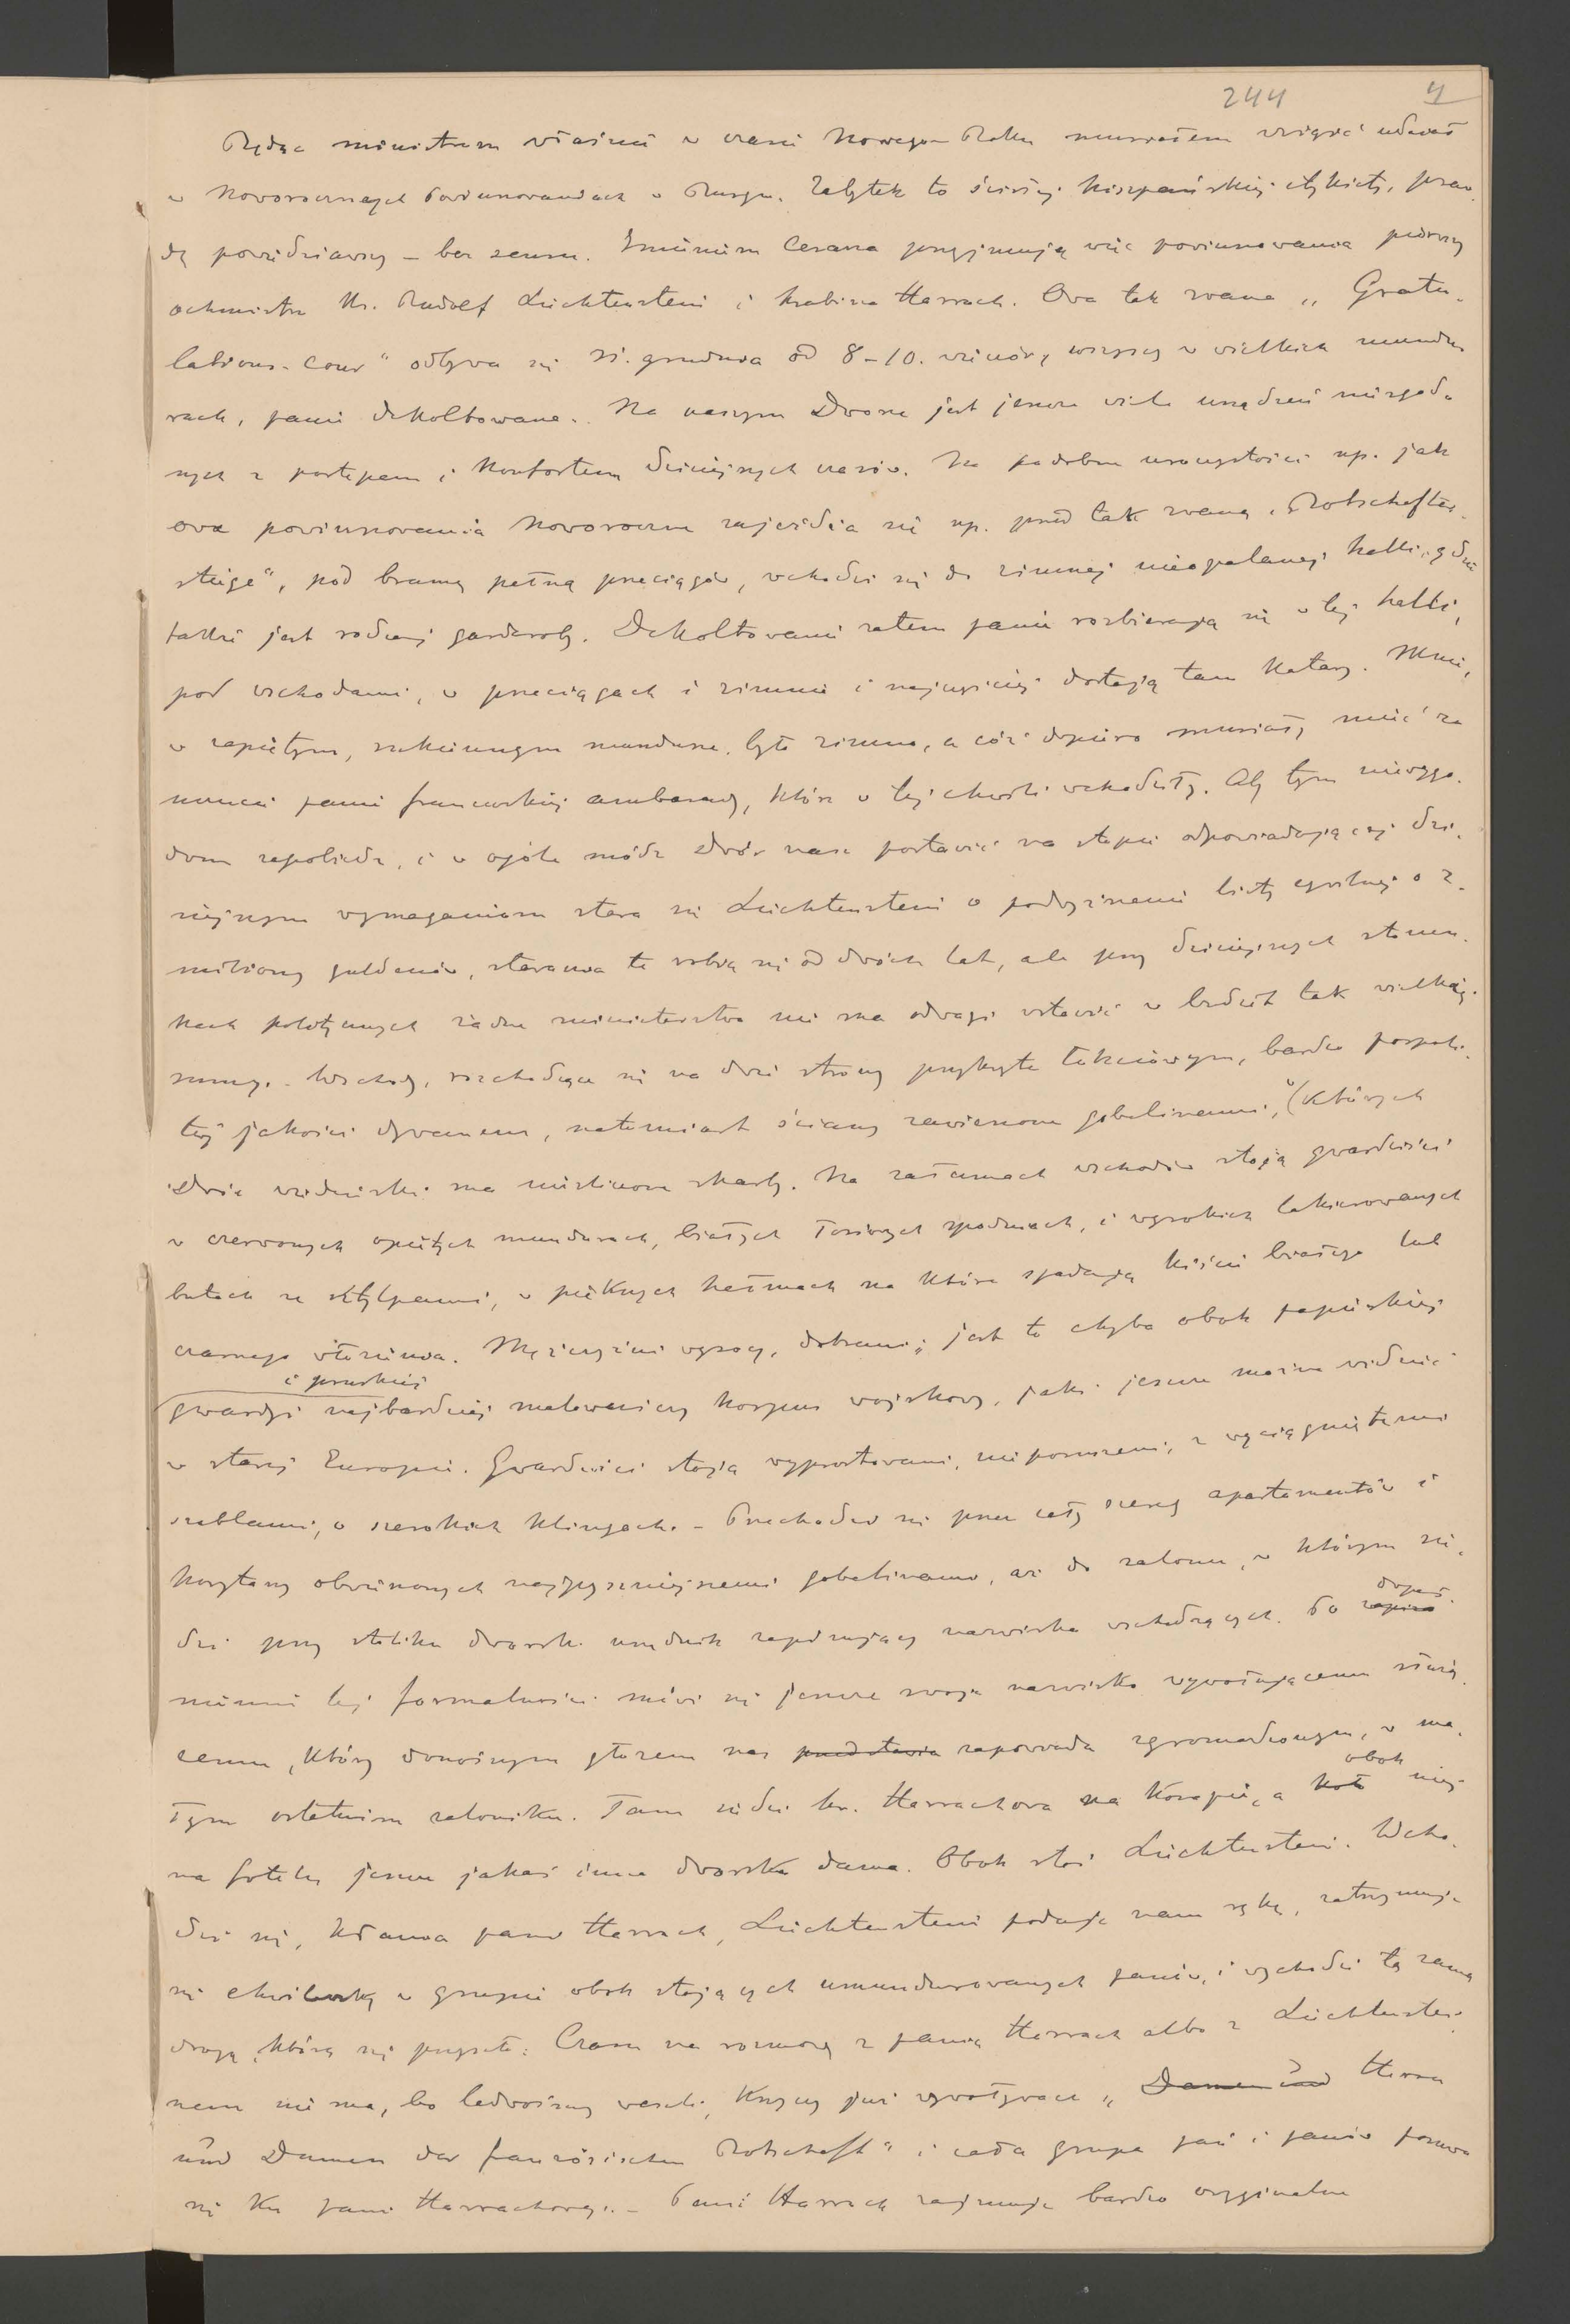 244 4
Będąc ministrem właśnie w czasie Nowego Roku musiałem wziąść udział
w Noworocznych powinszowaniach w Burgu. Zabytek to ścisłej hiszpańskiej etykiety, praw-
dę powiedziawszy – bez sensu. Imieniem Cesarza przyjmują więc powinszowania pierwszy
ochmistrz Ks. Rudolf Liechtenstein i hrabina Harrach. Owa tak zwana „Gratu-
lations-Cour" odbywa się 31. grudnia od 8–10. wieczór, wszyscy w wielkich mundu-
rach, panie dekoltowane. Na naszym Dworze jest jeszcze wiele urządzeń niezgod-
nych z postępem i Konfortem dzisiejszych czasów. Na podobne uroczystości np. jak
owe powinszowania Noworoczne zajeżdża się np. przed tak zwaną „Botschafter-
stiege", pod bramę pełną przeciągów, wchodzi się do zimnej nieopalanej halli, gdzie
także jest rodzaj garderoby. Dekoltowane zatem panie rozbierają się w tej halli,
pod wschodami, w przeciągach i zimnie i najczęściej dostają tam Katary. Mnie,
w zapiętym, sukiennym mundurze, było zimno, a cóż dopiero musiały mieć za
uczucie panie francuskiej ambasady, które w tej chwili wchodziły. Aby tym niewygo-
dom zapobiedz, i w ogóle módz Dwór nasz postawić na stopie odpowiadającej dzi-
siejszym wymaganiom stara się Liechtenstein o podwyższenie listy cywilnej o 2.
miliony guldenów, starania te robią się od dwóch lat, ale przy dzisiejszych stosun-
kach politycznych żadne ministerstwo nie ma odwagi wstawić w budżet tak wielkiej
sumy. – Wschody, rozchodzące się na dwie strony przykryte łokciowym, bardzo pospoli-
tej jakości dywanem, natomiast ściany zawieszone gobelinami, (których
Dwór wiedeński ma nieśliczone skarby. Na załamach wschodów stoją gwardziści
w czerwonych opiętych mundurach, białych łosiowych spodniach, i wysokich lakierowanych
butach ze sztylpami, w pięknych hełmach na które spadają kiście białego lub
czarnego włosienia. Mężczyźni wysocy, dobrani; jest to chyba obok papieskiej
i pruskiej
gwardyi najbardziej malowniczy korpus wojskowy, jaki jeszcze można widzieć
w starej Europie. Gwardziści stoją wyprostowani, nieporuszeni, z wyciągniętemi
szablami, o szerokich klingach. – Przechodzi się przez cały szereg apartamentów i
korytarzy obwieszonych najpyszniejszemi gobelinami, aż do salonu, w którym sie-
dzi przy stoliku dworski urzędnik zapisujący nazwiska wchodzących. Po dopeł-
nieniu tej formalności mówi się jeszcze swoje nazwisko wywołującemu służą-
cemu, który donośnym głosem nas przedstawia zapowiada zgromadzonym, w ma-
łym ostatnim saloniku. Tam siedzi hr. Harrachowa na kanapie, a koło obok niej
na fotelu jeszcze jakaś inna dworska dama. Obok stoi Liechtenstein. Wcho-
dzi się, kłania pani Harrach, Liechtenstein podaje nam rękę, zatrzymuje
się chwileczkę w grupie obok stojących umundurowanych panów, i wychodzi tą samą
drogą, którą się przyszło. Czasu na rozmowę z panią Harrach albo z Liechtenstei-
nem nie ma, bo ledwośmy weszli, krzyczy już wywoływacz „Damen und Herren
und Damen der französischen Botschaft" i cała grupa pań i panów posuwa
się ku pani Harrachowej. – Pani Harrach zajmuje bardzo oryginalne